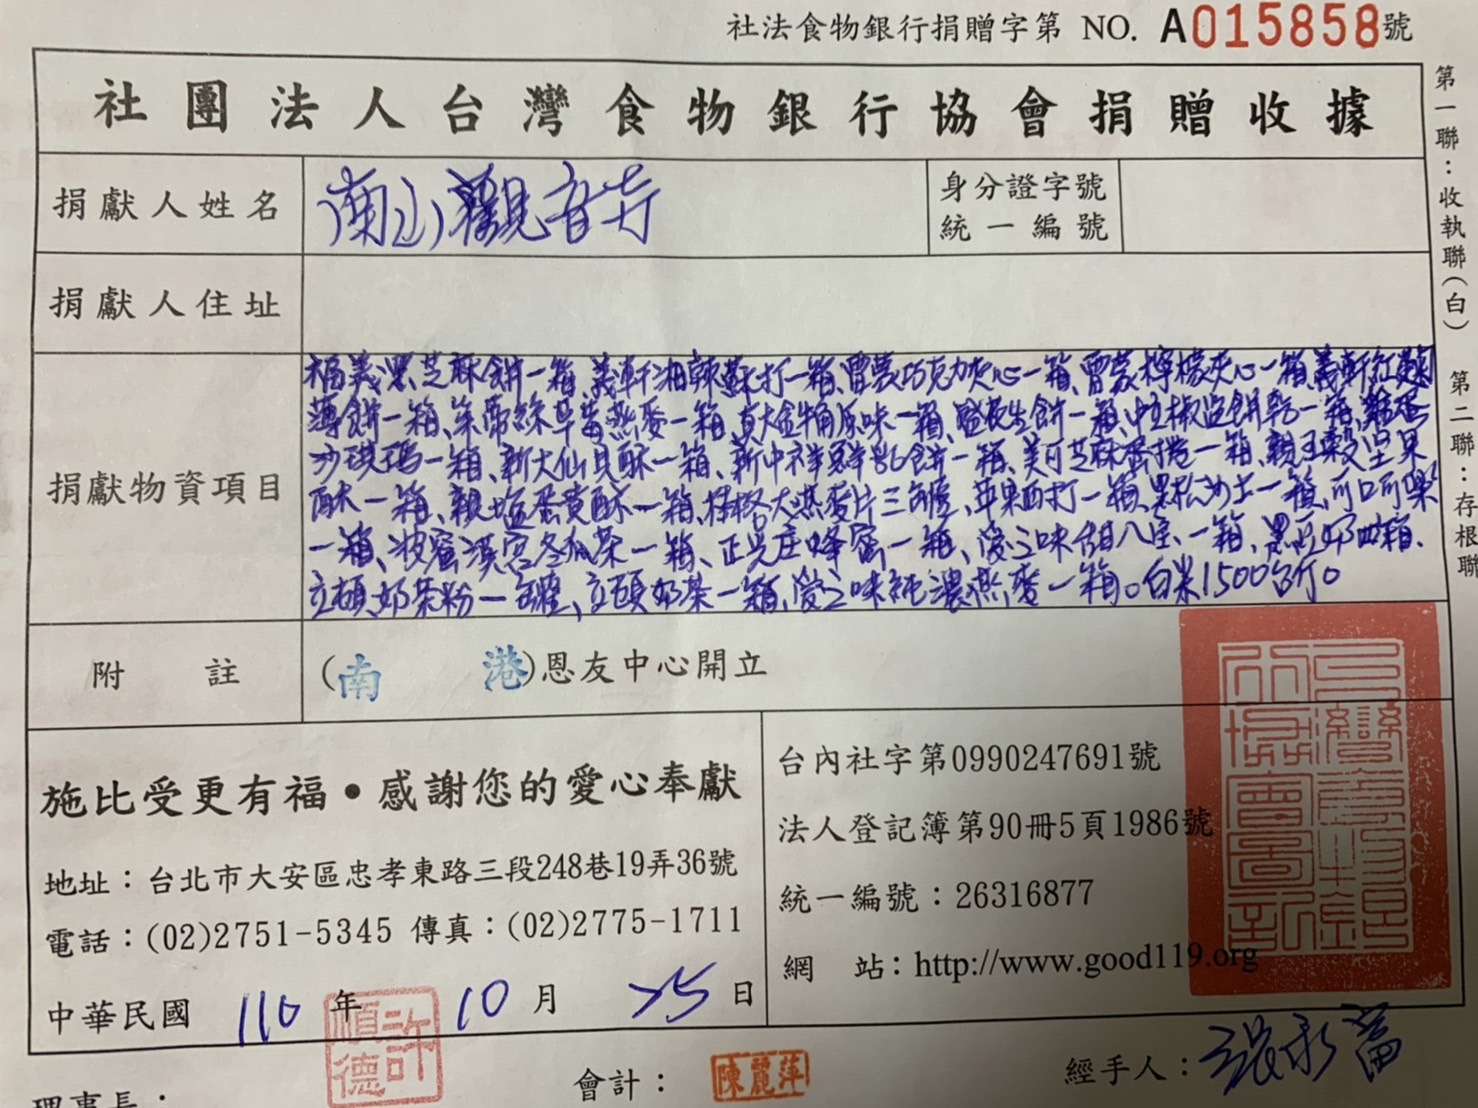 社法食物銀行捐贈字第 NO. A015858號
社團法人台灣食物銀行協會捐贈收據
捐獻人姓名 南山觀音寺 身分證字號
統一編號
捐獻人住址
捐獻物資項目
福義黑芝麻餅一箱、義軒湘辣蘇打一箱、曹蒙巧克力夾心一箱、曹蒙檸檬夾心一箱、義軒紅麴
薄餅一箱、草莓燕麥一箱、真大金牛角原味一箱、生餅一箱、椒鹽餅乾一箱、
沙琪瑪一箱、新大仙貝酥一箱、新中祥鮮乳餅一箱、美可芝麻蛋捲一箱、親王穀堅果
酥一箱、親王鹽蛋黃酥一箱、大燕麥片三罐、蘋果西打一箱、黑松沙士一箱、可口可樂
一箱、波蜜漢宮冬瓜茶一箱、正光庄蜂蜜一箱、愛之味甜八宝一箱、黑豆奶四箱、
立頓奶茶粉一罐、立頓奶茶一箱、愛之味純濃燕麥一箱。白米1500台斤。
附註 (南港)恩友中心開立
施比受更有福•感謝您的愛心奉獻
地址：台北市大安區忠孝東路三段248巷19弄36號
電話：(02)2751-5345 傳真：(02)2775-1711
中華民國 110 年 10 月 25 日
台內社字第0990247691號
法人登記簿第90冊5頁1986號
統一編號：26316877
網 站：http://www.good119.org
理事長：
許順德
會計：陳麗萍
經手人：張永富
第一聯：收執聯(白) 第二聯：存根聯